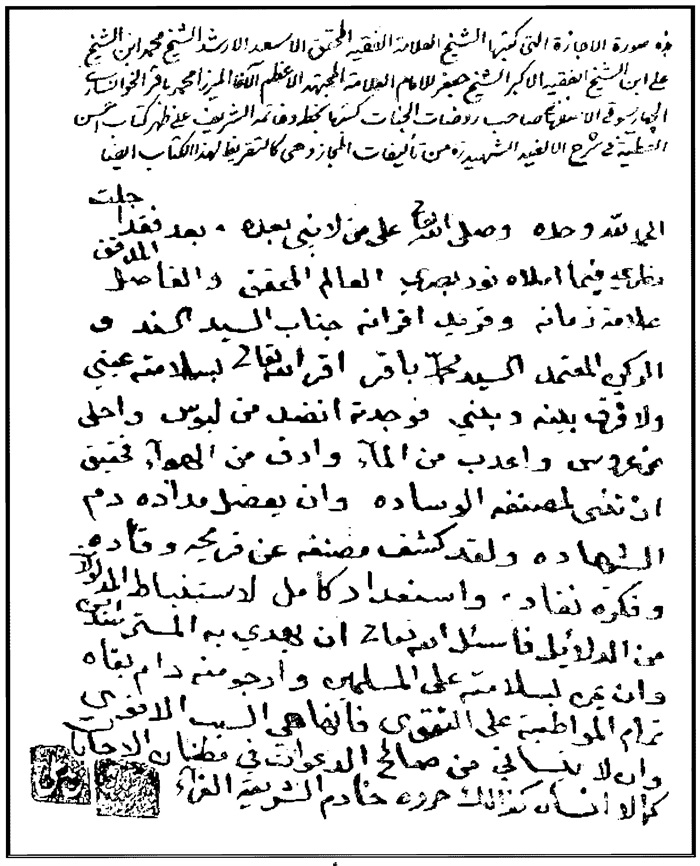 هذه صورة الاجازة التى كتبها الشيخ العلامة الفقيه المحقق الاسعد الارشد الشيخ محمد ابن الشيخ
على ابن الشيخ الفقيه الاكبر الشيخ جعفر للامام العلامة المجتهد الاعظم الآقا الميرزا محمد باقر الخوانسارى
الچهارسوقى الاصفهانى صاحب روضات الجنات كتبها بخطه وخاتمه الشريف على ظهر كتاب احسن
العطية فى شرح الالفية الشهيدية من تأليفات المجاز وهى كالتقريظ لهذا الكتاب ايضا
الحمد لله وحده وصلى الله على من لا نبي بعده وبعد فقد جلت
نظري فيما املاه نور بصري العالم المحقق والفاضل المدقق
علامة زمانه وفريد اقرانه جناب السيد السند و
الركن المعتمد السيد محمد باقر اقر الله تعالى بسلامته عيني
ولا فرق بينه وبيني فوجدته انضد من لبوس واحلى
من عروس واعذب من الماء وارق من الهواء فحقيق
ان تثنى لمصنفه الوساده وان يفضل مداده دم
الشهاده ولقد كشف مصنفه عن قريحه وقاده
وفكرة نقاده واستعداد كامل لاستنباط المدلولات
من الدلائل فاسئل الله تعالى ان يهدي به المسترشدين
وان يمن بسلامته على المسلمين وارجو منه دام بقاه
تمام المواظبة على التقوى فانها هي السبب الاقوى
وان لا ينساني من صالح الدعوات في مظان الاجابات
كما لا انساه كذلك حرره خادم الشريعة الغراء